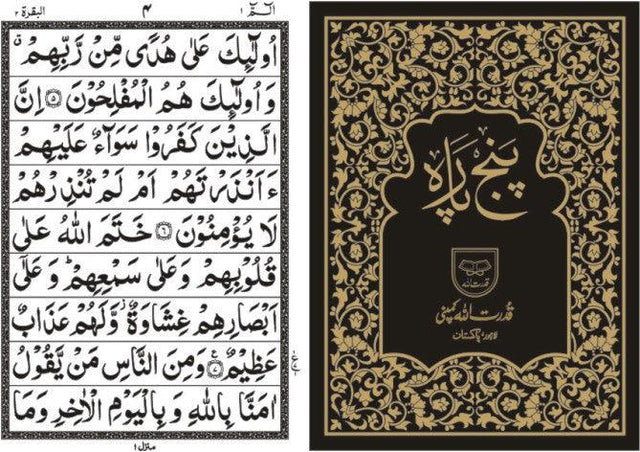 البقرة ٢
٤
الٓمّٓ ١
اُولٰٓئِكَ عَلٰى هُدًى مِّنْ رَّبِّهِمْ ۙ
وَ اُولٰٓئِكَ هُمُ الْمُفْلِحُوْنَ ﴿۵﴾ اِنَّ
الَّذِيْنَ كَفَرُوْا سَوَآءٌ عَلَيْهِمْ
ءَاَنْذَرْتَهُمْ اَمْ لَمْ تُنْذِرْهُمْ
لَا يُؤْمِنُوْنَ ﴿۶﴾ خَتَمَ اللّٰهُ عَلٰى
قُلُوْبِهِمْ وَ عَلٰى سَمْعِهِمْ ؕ وَ عَلٰٓى
اَبْصَارِهِمْ غِشَاوَةٌ ؗ وَّ لَهُمْ عَذَابٌ
عَظِيْمٌ ﴿۷﴾ وَ مِنَ النَّاسِ مَنْ يَّقُوْلُ
اٰمَنَّا بِاللّٰهِ وَ بِالْيَوْمِ الْاٰخِرِ وَ مَا
منزل ١
پنج پارہ
قدرت اللہ
قدرت اللہ کمپنی
لاہور، پاکستان